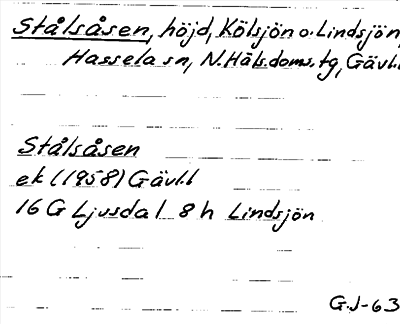 Stålsåsen, höjd, Kölsjön o. Lindsjön,
Hassela sn, N. Häls. doms. tg, Gävl.
Stålsåsen
ek (1958) Gävl.l
16 G Ljusdal 8 h Lindsjön
G.J-63